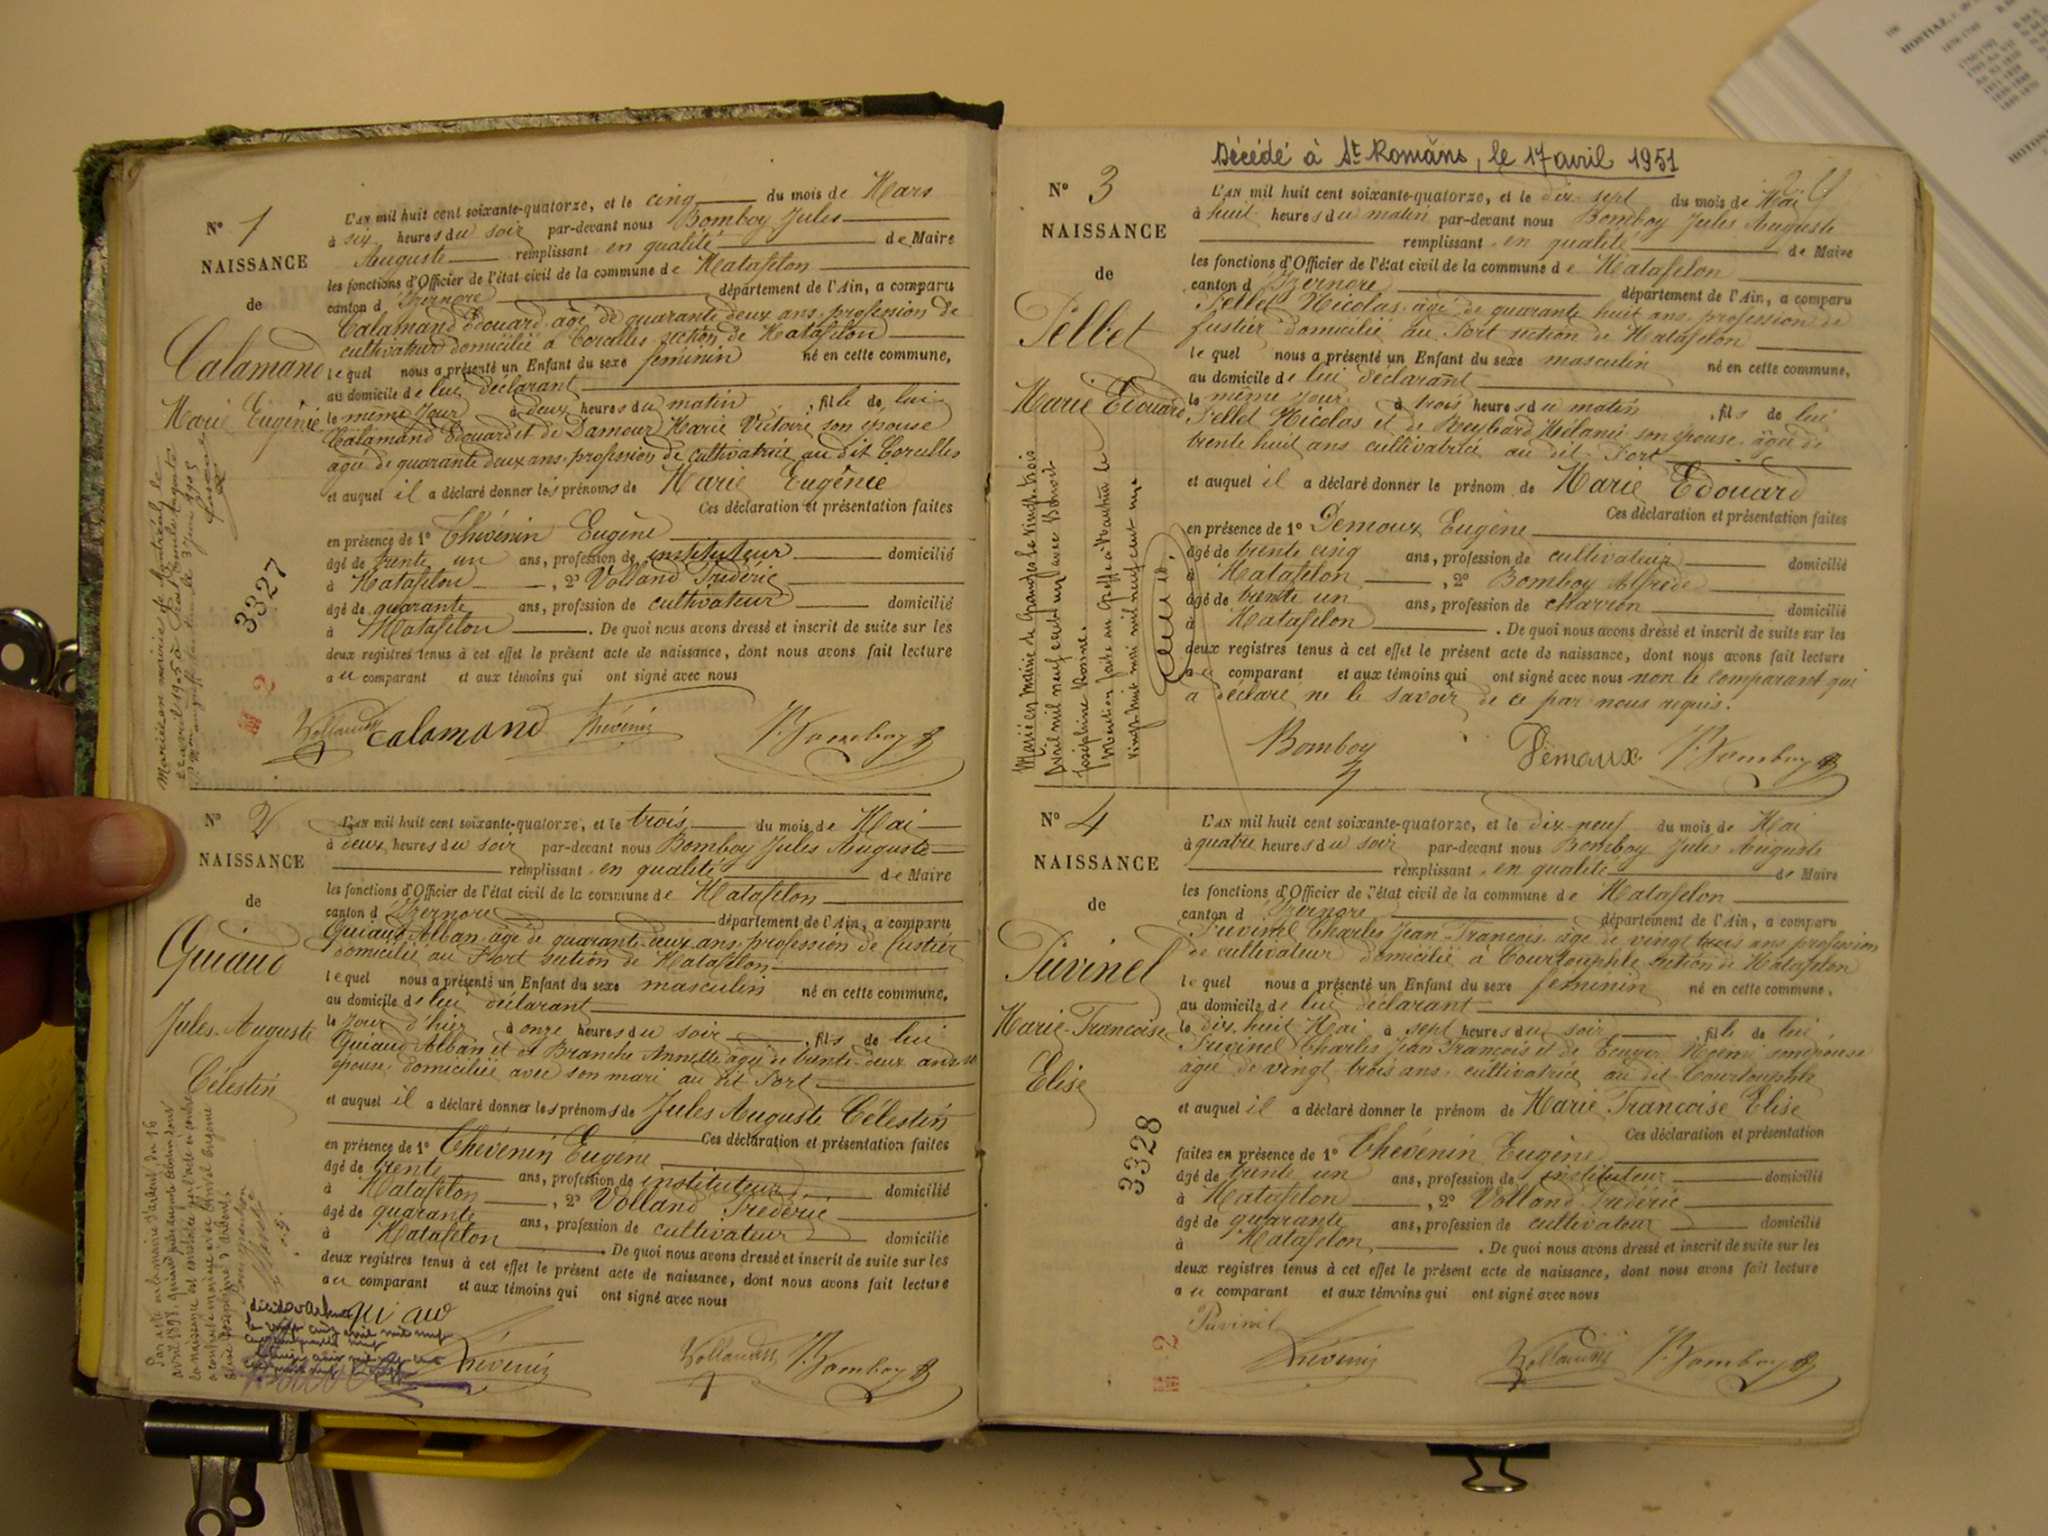 N° 1
NAISSANCE
de
Calamand
Marie Eugénie
L'AN mil huit cent soixante-quatorze, et le cinq du mois de Mars
à six heures du soir par-devant nous Bomboy Jules
Auguste remplissant en qualité de Maire
les fonctions d'Officier de l'état civil de la commune de Matafelon
canton d'Izernore département de l'Ain, a comparu
Calamand Édouard âgé de quarante deux ans, profession de
cultivateur domicilié à Corcelles section de Matafelon
lequel nous a présenté un Enfant du sexe feminin né en cette commune,
au domicile de lui déclarant
le même jour à deux heures du matin, fille de lui
Calamand Edouard et de Damour Marie Victoire son épouse
âgée de quarante deux ans, profession de cultivatrice au dit Corcelles
et auquel il a déclaré donner les prénoms de Marie Eugénie
Ces déclaration et présentation faites
en présence de 1° Thévenin Eugène
âgé de trente un ans, profession de instituteur domicilié
à Matafelon, 2° Volland Frédéric
âgé de quarante ans, profession de cultivateur domicilié
à Matafelon. De quoi nous avons dressé et inscrit de suite sur les
deux registres tenus à cet effet le présent acte de naissance, dont nous avons fait lecture
au comparant et aux témoins qui ont signé avec nous
3327
M 2
Volland Calamand Thévenin J. Bomboy
N° 2
NAISSANCE
de
Guiaud
Jules Auguste
Célestin
L'AN mil huit cent soixante-quatorze, et le trois du mois de Mai
à deux heures du soir par-devant nous Bomboy Jules Auguste
remplissant en qualité de Maire
les fonctions d'Officier de l'état civil de la commune de Matafelon
canton d'Izernore département de l'Ain, a comparu
Guiaud Alban âgé de quarante deux ans, profession de fustier
domicilié au Port section de Matafelon
lequel nous a présenté un Enfant du sexe masculin né en cette commune,
au domicile de lui déclarant
le jour d'hier à onze heures du soir, fils de lui
Guiaud Alban et de Branche Annette âgée de trente deux ans
épouse, domiciliée avec son mari au dit Port
et auquel il a déclaré donner les prénoms de Jules Auguste Célestin
Ces déclaration et présentation faites
en présence de 1° Thévenin Eugène
âgé de trente ans, profession de instituteur domicilié
à Matafelon, 2° Volland Frédéric
âgé de quarante ans, profession de cultivateur domicilié
à Matafelon. De quoi nous avons dressé et inscrit de suite sur les
deux registres tenus à cet effet le présent acte de naissance, dont nous avons fait lecture
au comparant et aux témoins qui ont signé avec nous
Thévenin Volland J. Bomboy
Décédé à St Romans, le 17 avril 1951
N° 3
NAISSANCE
de
Pellet
Marie Edouard
L'AN mil huit cent soixante-quatorze, et le dix sept du mois de Mai
à huit heures du matin par-devant nous Bomboy Jules Auguste
remplissant en qualité de Maire
les fonctions d'Officier de l'état civil de la commune de Matafelon
canton d'Izernore département de l'Ain, a comparu
Pellet Nicolas âgé de quarante huit ans, profession de
fustier domicilié au Port section de Matafelon
lequel nous a présenté un Enfant du sexe masculin né en cette commune,
au domicile de lui déclarant
le même jour à trois heures du matin, fils de lui
Pellet Nicolas et de Reybard Mélanie son épouse, âgée de
trente huit ans cultivatrice au dit Port
et auquel il a déclaré donner le prénom de Marie Edouard
Ces déclaration et présentation faites
en présence de 1° Demoux Eugène
âgé de trente cinq ans, profession de cultivateur domicilié
à Matafelon, 2° Bomboy Alfred
âgé de trente un ans, profession de charron domicilié
à Matafelon. De quoi nous avons dressé et inscrit de suite sur les
deux registres tenus à cet effet le présent acte de naissance, dont nous avons fait lecture
au comparant et aux témoins qui ont signé avec nous non le comparant qui
a déclaré ne le savoir de ce par nous requis.
Bomboy Demoux J. Bomboy
N° 4
NAISSANCE
de
Puvinel
Marie Françoise
Elise
L'AN mil huit cent soixante-quatorze, et le dix neuf du mois de Mai
à quatre heures du soir par-devant nous Bomboy Jules Auguste
remplissant en qualité de Maire
les fonctions d'Officier de l'état civil de la commune de Matafelon
canton d'Izernore département de l'Ain, a comparu
Puvinel Charles Jean François âgé de vingt trois ans profession
de cultivateur domicilié à Courtouphle section de Matafelon
lequel nous a présenté un Enfant du sexe feminin né en cette commune,
au domicile de lui déclarant
le dix huit Mai à sept heures du soir, fille de lui
Puvinel Charles Jean François et de Noémi son épouse
âgée de vingt trois ans, cultivatrice au dit Courtouphle
et auquel il a déclaré donner le prénom de Marie Françoise Elise
Ces déclaration et présentation
faites en présence de 1° Thévenin Eugène
âgé de trente un ans, profession de instituteur domicilié
à Matafelon, 2° Volland Frédéric
âgé de quarante ans, profession de cultivateur domicilié
à Matafelon. De quoi nous avons dressé et inscrit de suite sur les
deux registres tenus à cet effet le présent acte de naissance, dont nous avons fait lecture
au comparant et aux témoins qui ont signé avec nous
3328
M 2
Puvinel
Thévenin Volland J. Bomboy